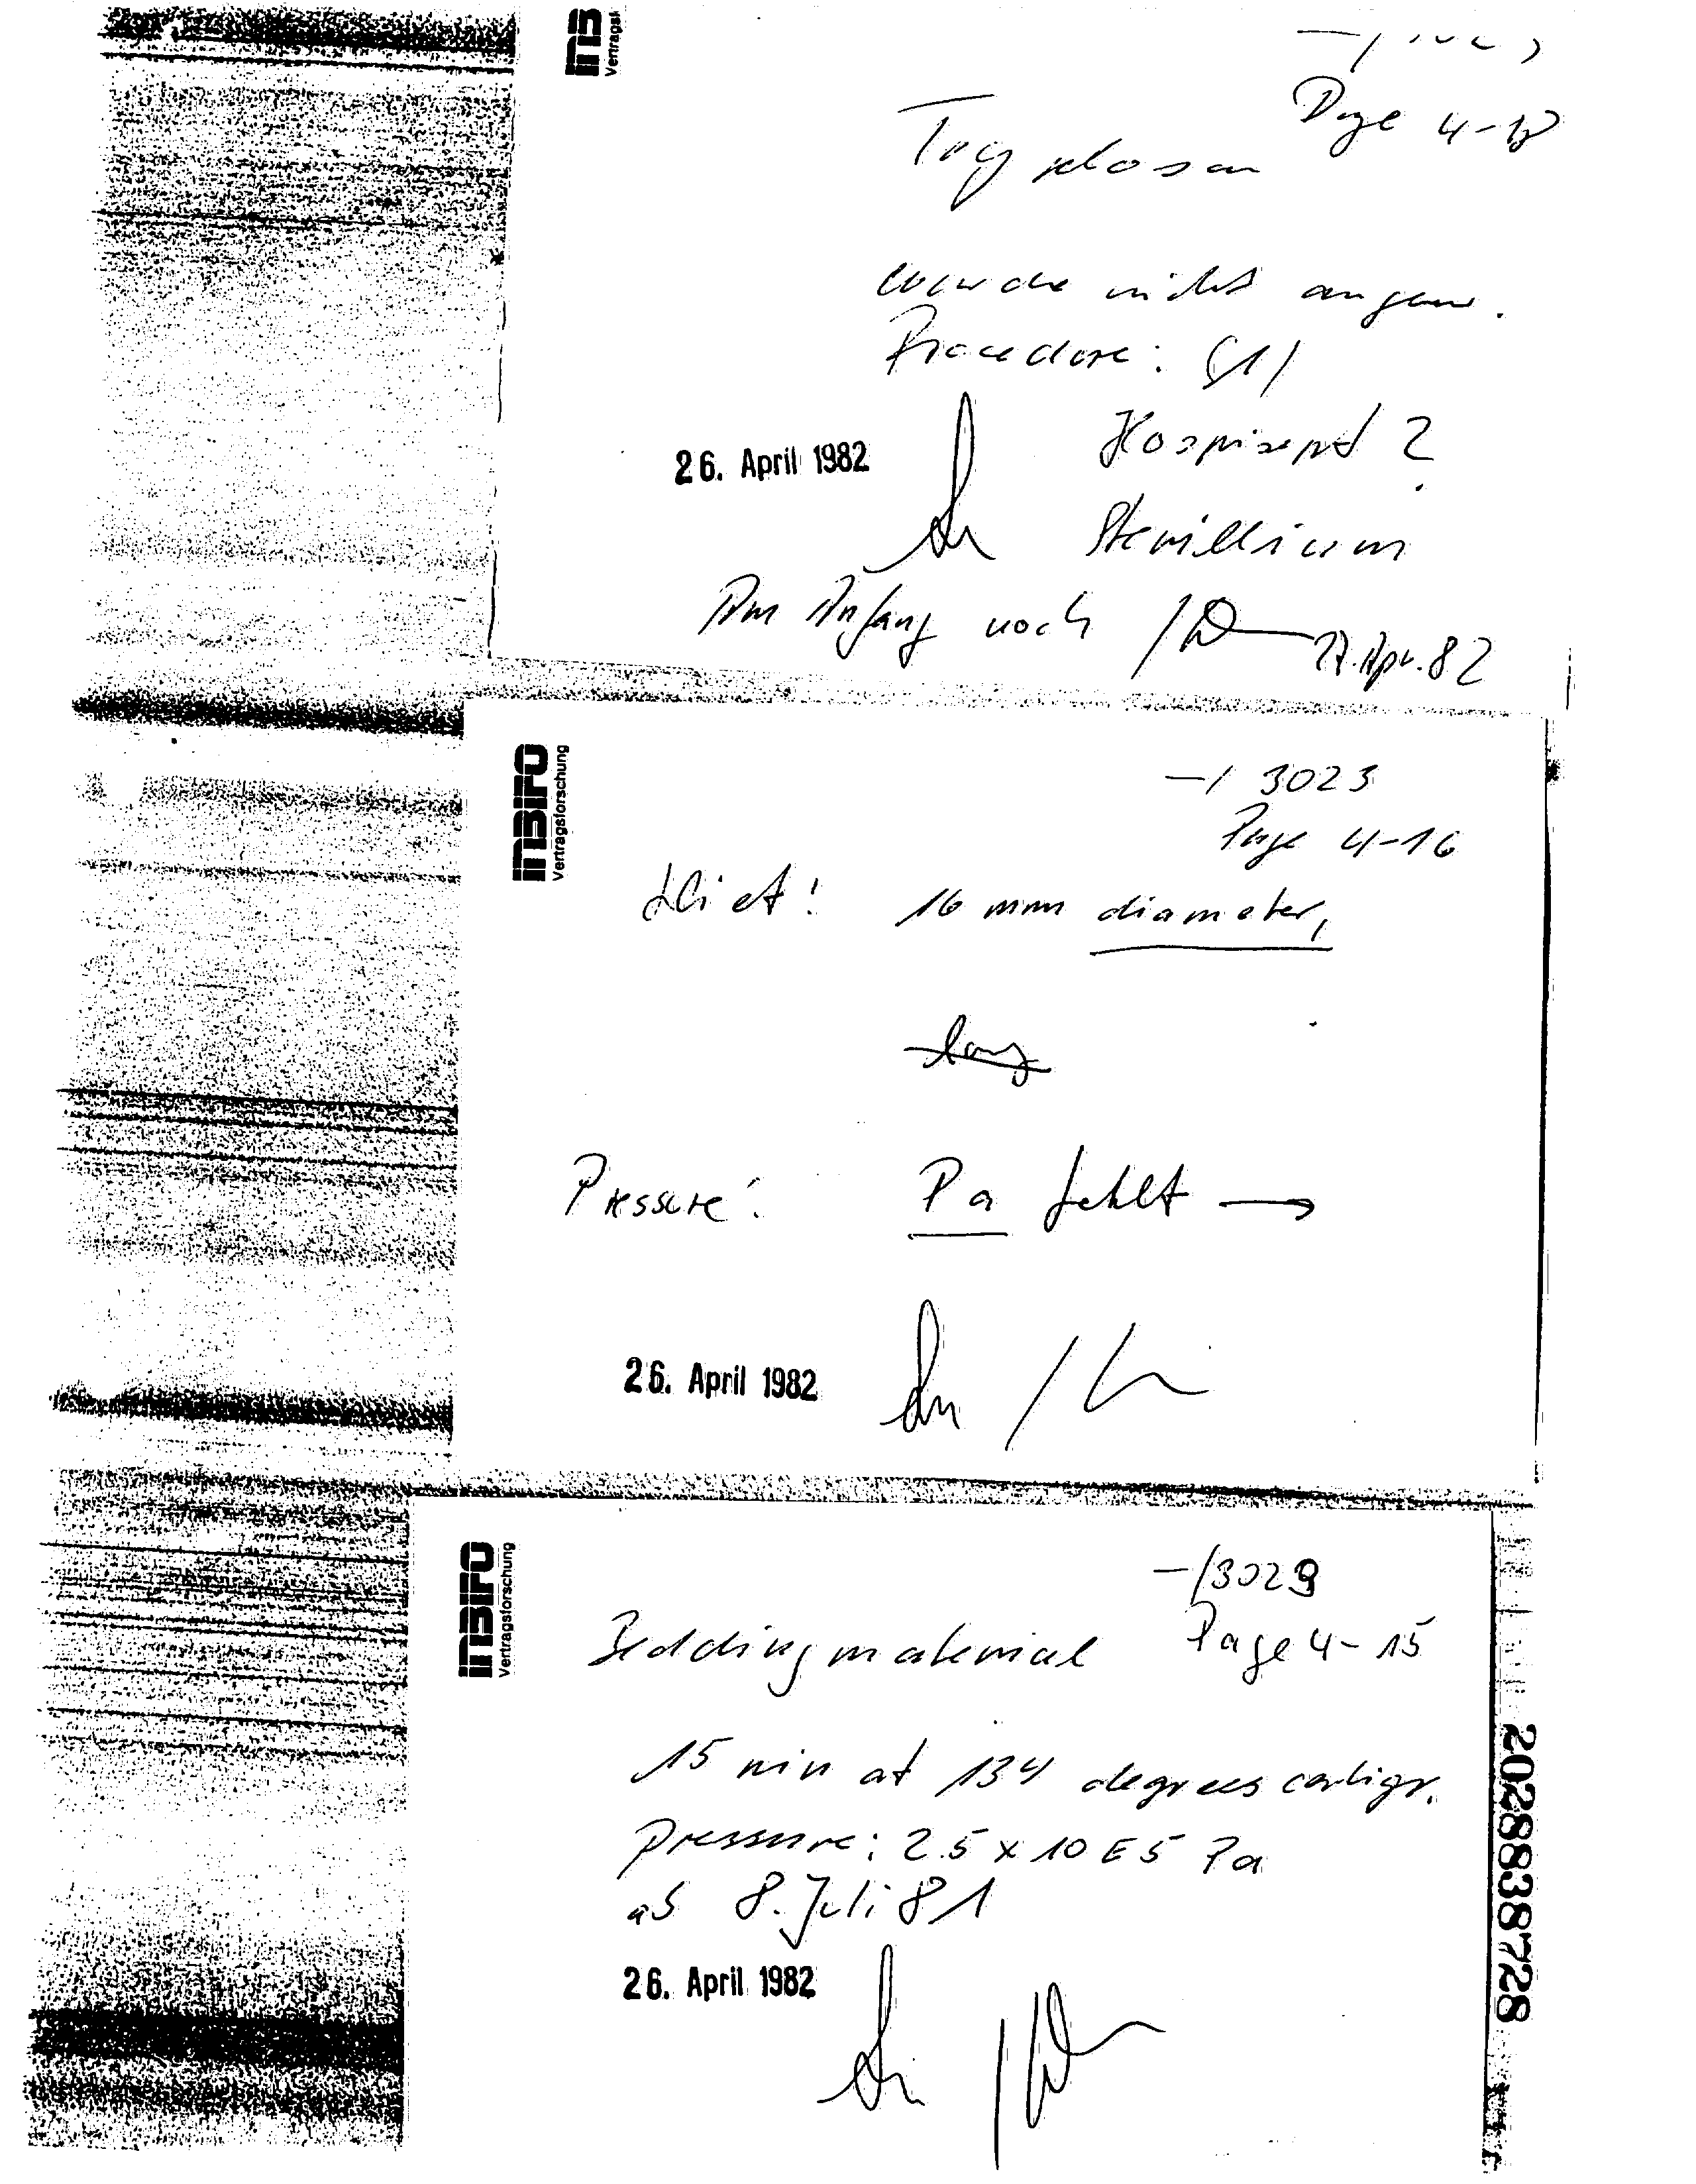 Page 4-18
wurde nicht angew.
Procedure: (1)
Hospisept ?
26. April 1982
Sterillium
Am Anfang noch
27. Apr. 82
INBIFO
Vertragsforschung
-/ 3023
Page 4-16
Diet: 16 mm diameter,
lang
Pressure: Pa fehlt →
26. April 1982
INBIFO
Vertragsforschung
-/3023
Bedding material Page 4-15
15 min at 134 degrees centigr.
pressure: 2.5 x 10 E5 Pa
ab 8. Juli 81
26. April 1982
2028838728